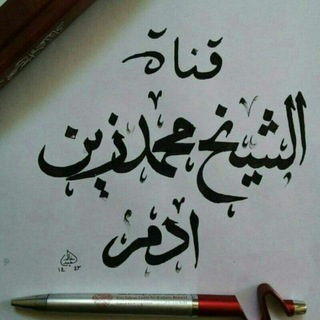 قناة
الشيخ محمد زين
ادم